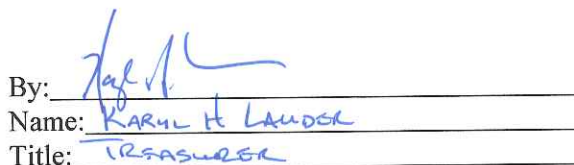 By:
Name: KARYL H LAUDER
Title: TREASURER